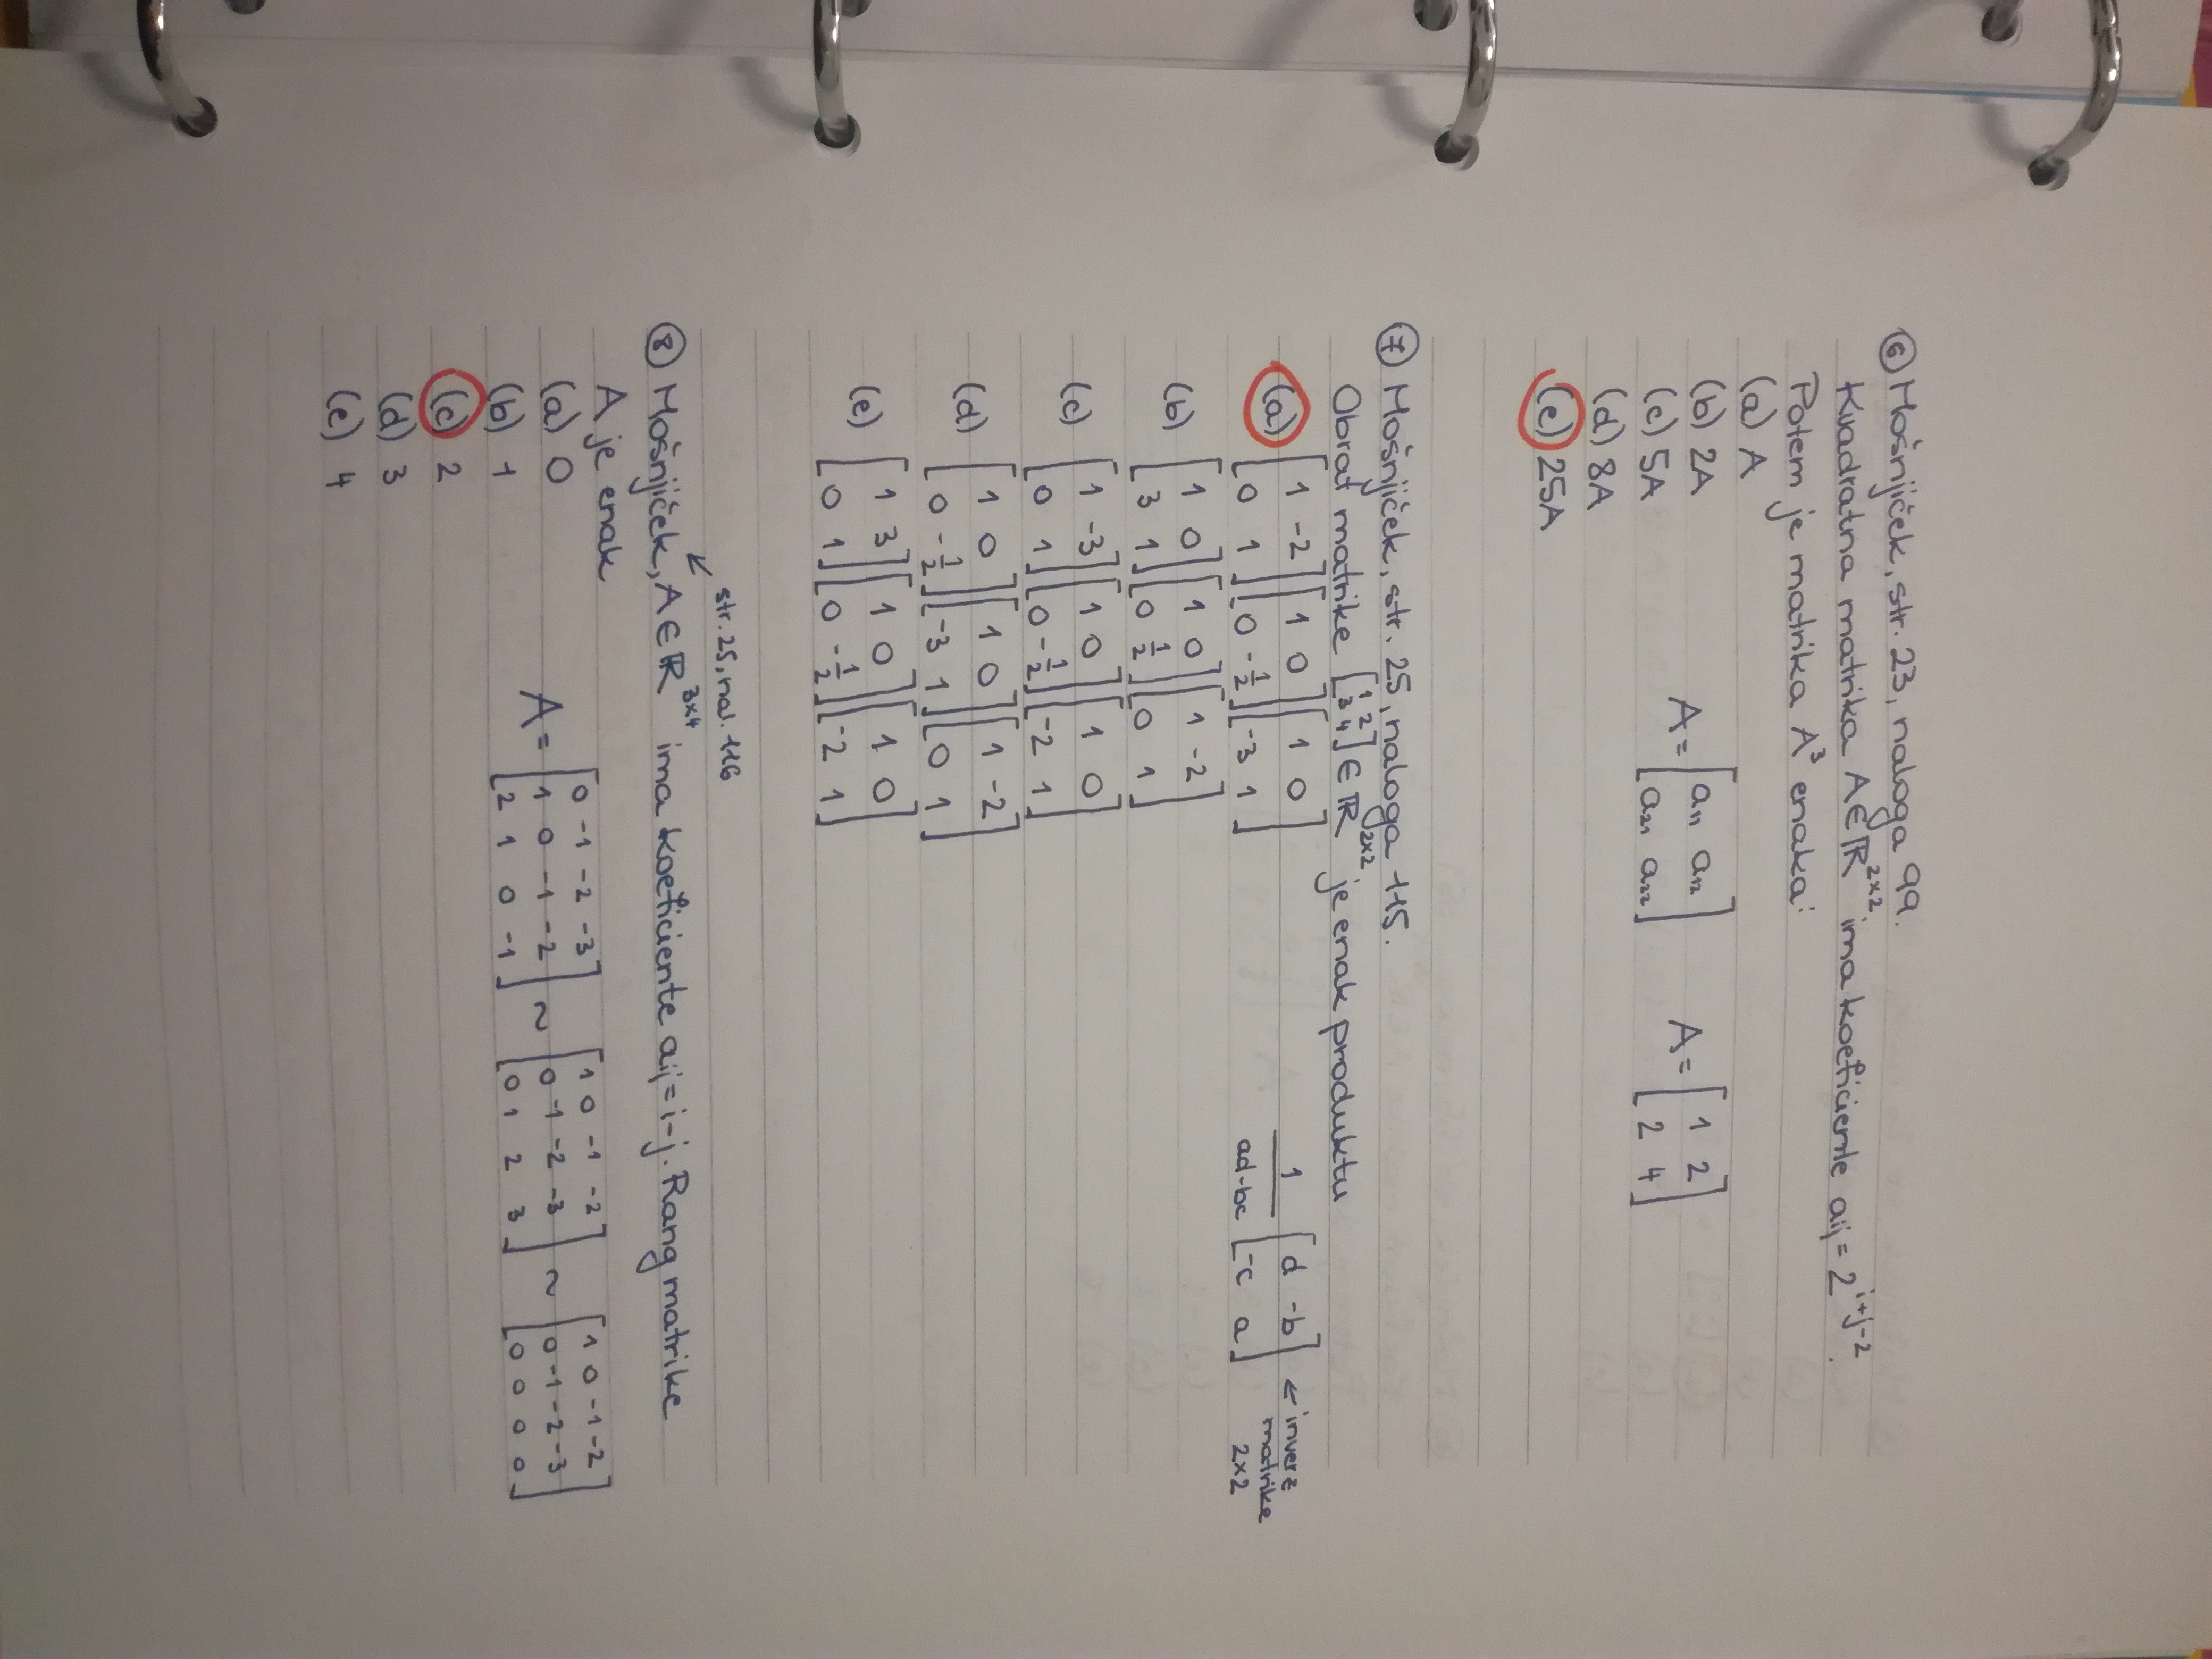 ⑥ Mošnjiček, str. 23, naloga 99.
Kvadratna matrika A∈ℝ^{2×2} ima koeficiente a_{ij} = 2^{i+j-2}.
Potem je matrika A³ enaka:
(a) A
(b) 2A A = [a₁₁ a₁₂; a₂₁ a₂₂] A = [1 2; 2 4]
(c) 5A
(d) 8A
(e) 25A
⑦ Mošnjiček, str. 25, naloga 115.
Obrat matrike [1 2; 3 4] ∈ ℝ^{2×2} je enak produktu
(a) [1 -2; 0 1][1 0; 0 -1/2][1 0; -3 1] 1/(ad-bc) [d -b; -c a] ← inverz matrike 2×2
(b) [1 0; 3 1][1 0; 0 1/2][1 -2; 0 1]
(c) [1 -3; 0 1][1 0; 0 -1/2][1 0; -2 1]
(d) [1 0; 0 -1/2][1 0; -3 1][1 -2; 0 1]
(e) [1 3; 0 1][1 0; 0 -1/2][1 0; -2 1]
↙ str. 25, nal. 116
⑧ Mošnjiček, A∈ℝ^{3×4} ima koeficiente a_{ij} = i-j. Rang matrike
A je enak
(a) 0 A = [0 -1 -2 -3; 1 0 -1 -2; 2 1 0 -1] ~ [1 0 -1 -2; 0 -1 -2 -3; 0 1 2 3] ~ [1 0 -1 -2; 0 -1 -2 -3; 0 0 0 0]
(b) 1
(c) 2
(d) 3
(e) 4